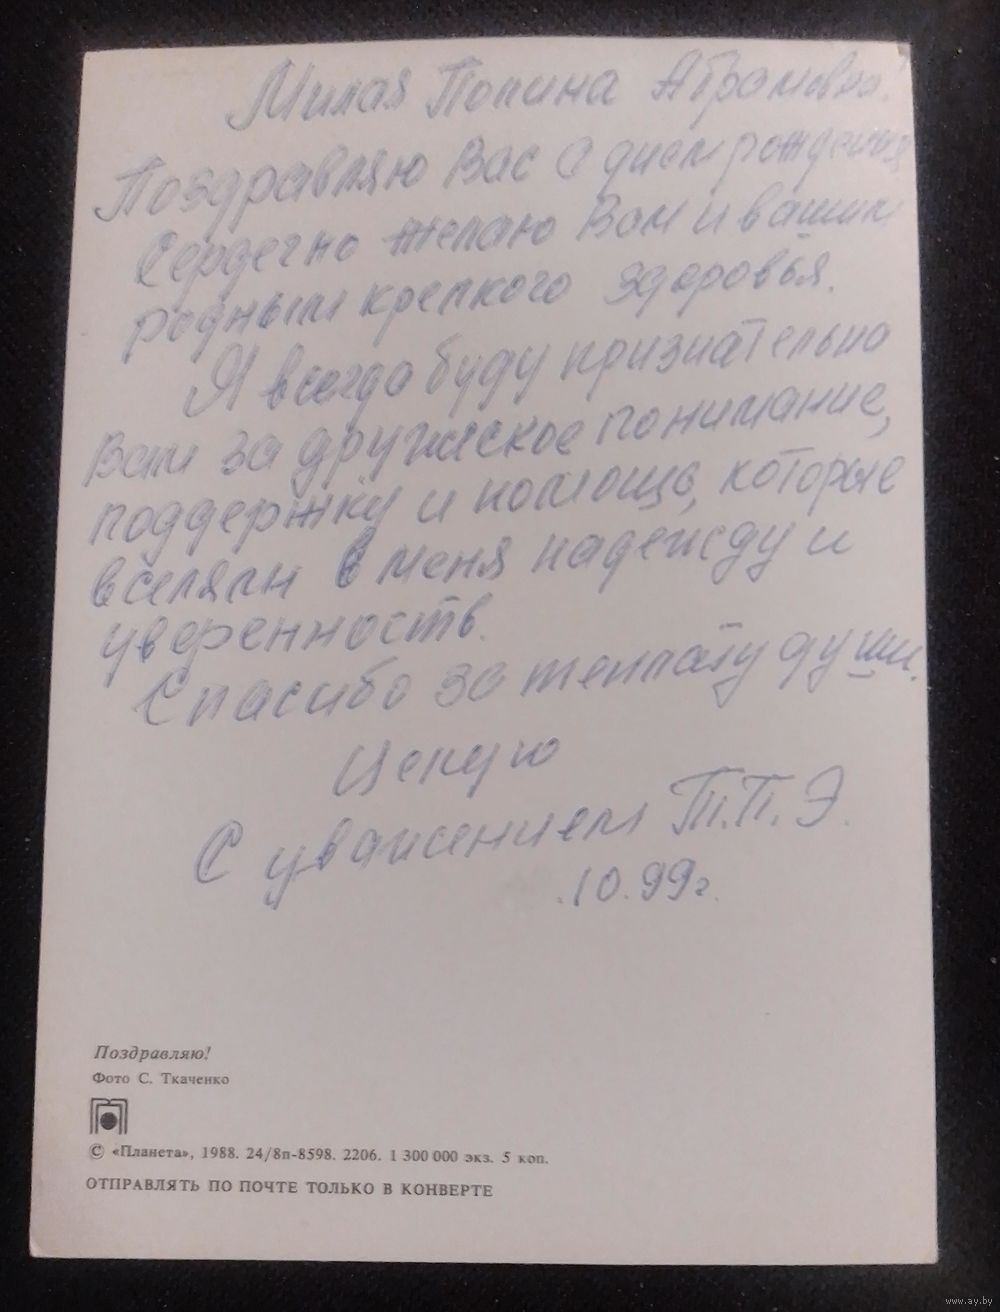 Милая Полина Абрамовна.
Поздравляю Вас с днем рождения
Сердечно желаю Вам и вашим
родным крепкого здоровья.
Я всегда буду признательна
Вам за дружеское понимание,
поддержку и помощь, которые
вселяли в меня надежду и
уверенность.
Спасибо за теплоту души.
Целую
С уважением Т.П.Э.
.10.99г.
Поздравляю!
Фото С. Ткаченко
© «Планета», 1988. 24/8п-8598. 2206. 1 300 000 экз. 5 коп.
ОТПРАВЛЯТЬ ПО ПОЧТЕ ТОЛЬКО В КОНВЕРТЕ
www.ay.by